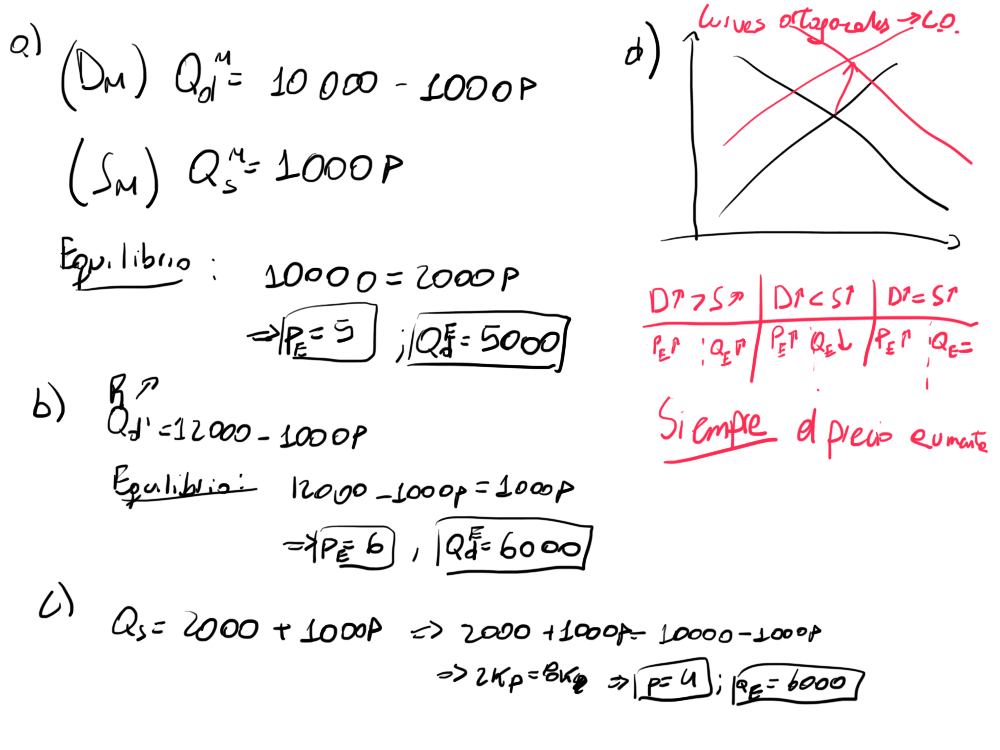 a)
(D_M) Q_d^M = 10 000 - 1000P
(S_M) Q_s^M = 1000P
Equilibrio : 10000 = 2000P
⇒ P_E = 5 ; Q_d^E = 5000
b) R ↗
Q_d' = 12000 - 1000P
Equilibrio: 12000 - 1000P = 1000P
⇒ P_E = 6 , Q_d^E = 6000
c) Q_s = 2000 + 1000P ⇒ 2000 + 1000P = 10000 - 1000P
⇒ 2KP = 8K ⇒ P = 4 ; Q_E = 6000
d) Curvas → L.P.
D↑ > S↗ | D↑ < S↑ | D↑ = S↑
P_E↑ Q_E↑ | P_E↑ Q_E↓ | P_E↑ Q_E=
Siempre el precio aumenta